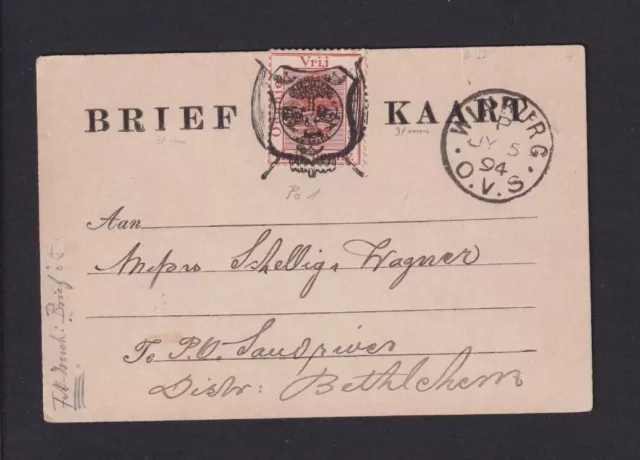 Vrij
BRIEF KAART
WINBURG
P
JY 5
94
O.V.S.
31 mm
31 mm
Po 1
Aan
Messrs Schellig & Wagner
To P.O. Sandrivier
Distr: Bethlehem